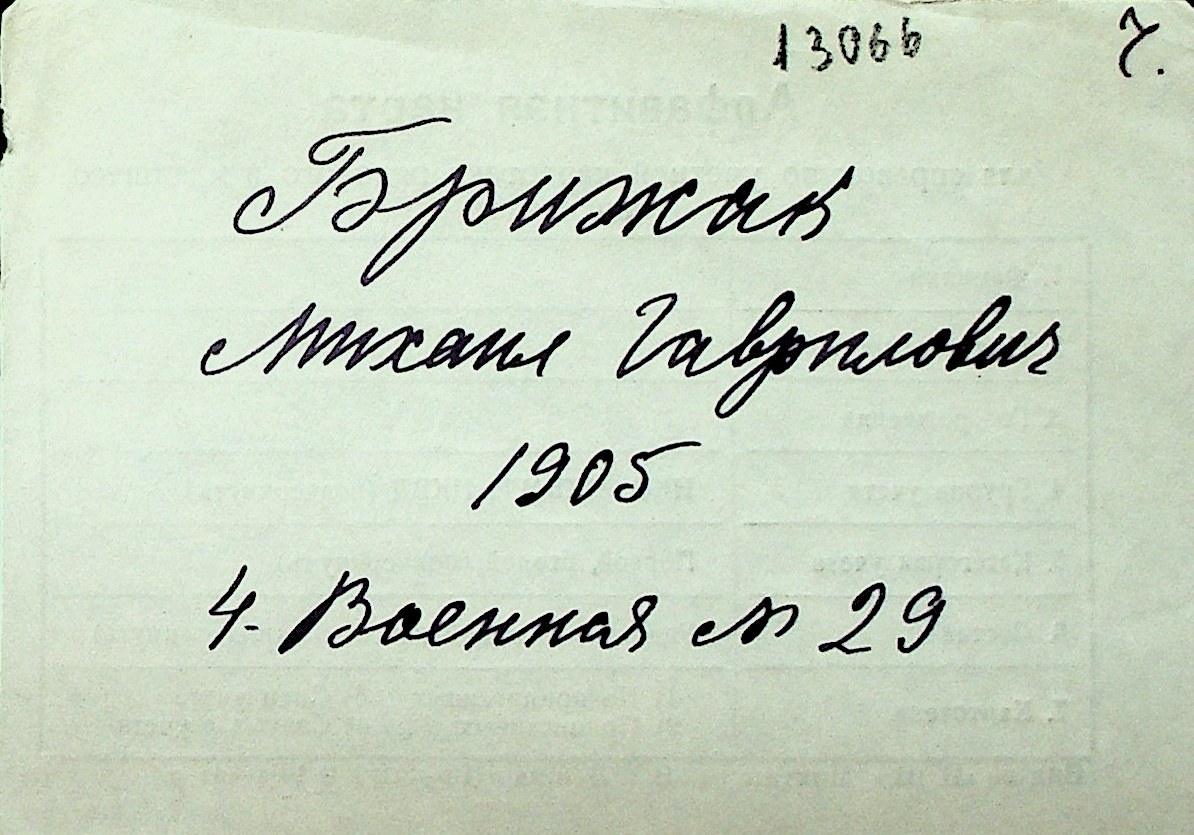 13066 7.
Брижак
Михаил Гаврилович
1905
4-Военная № 29